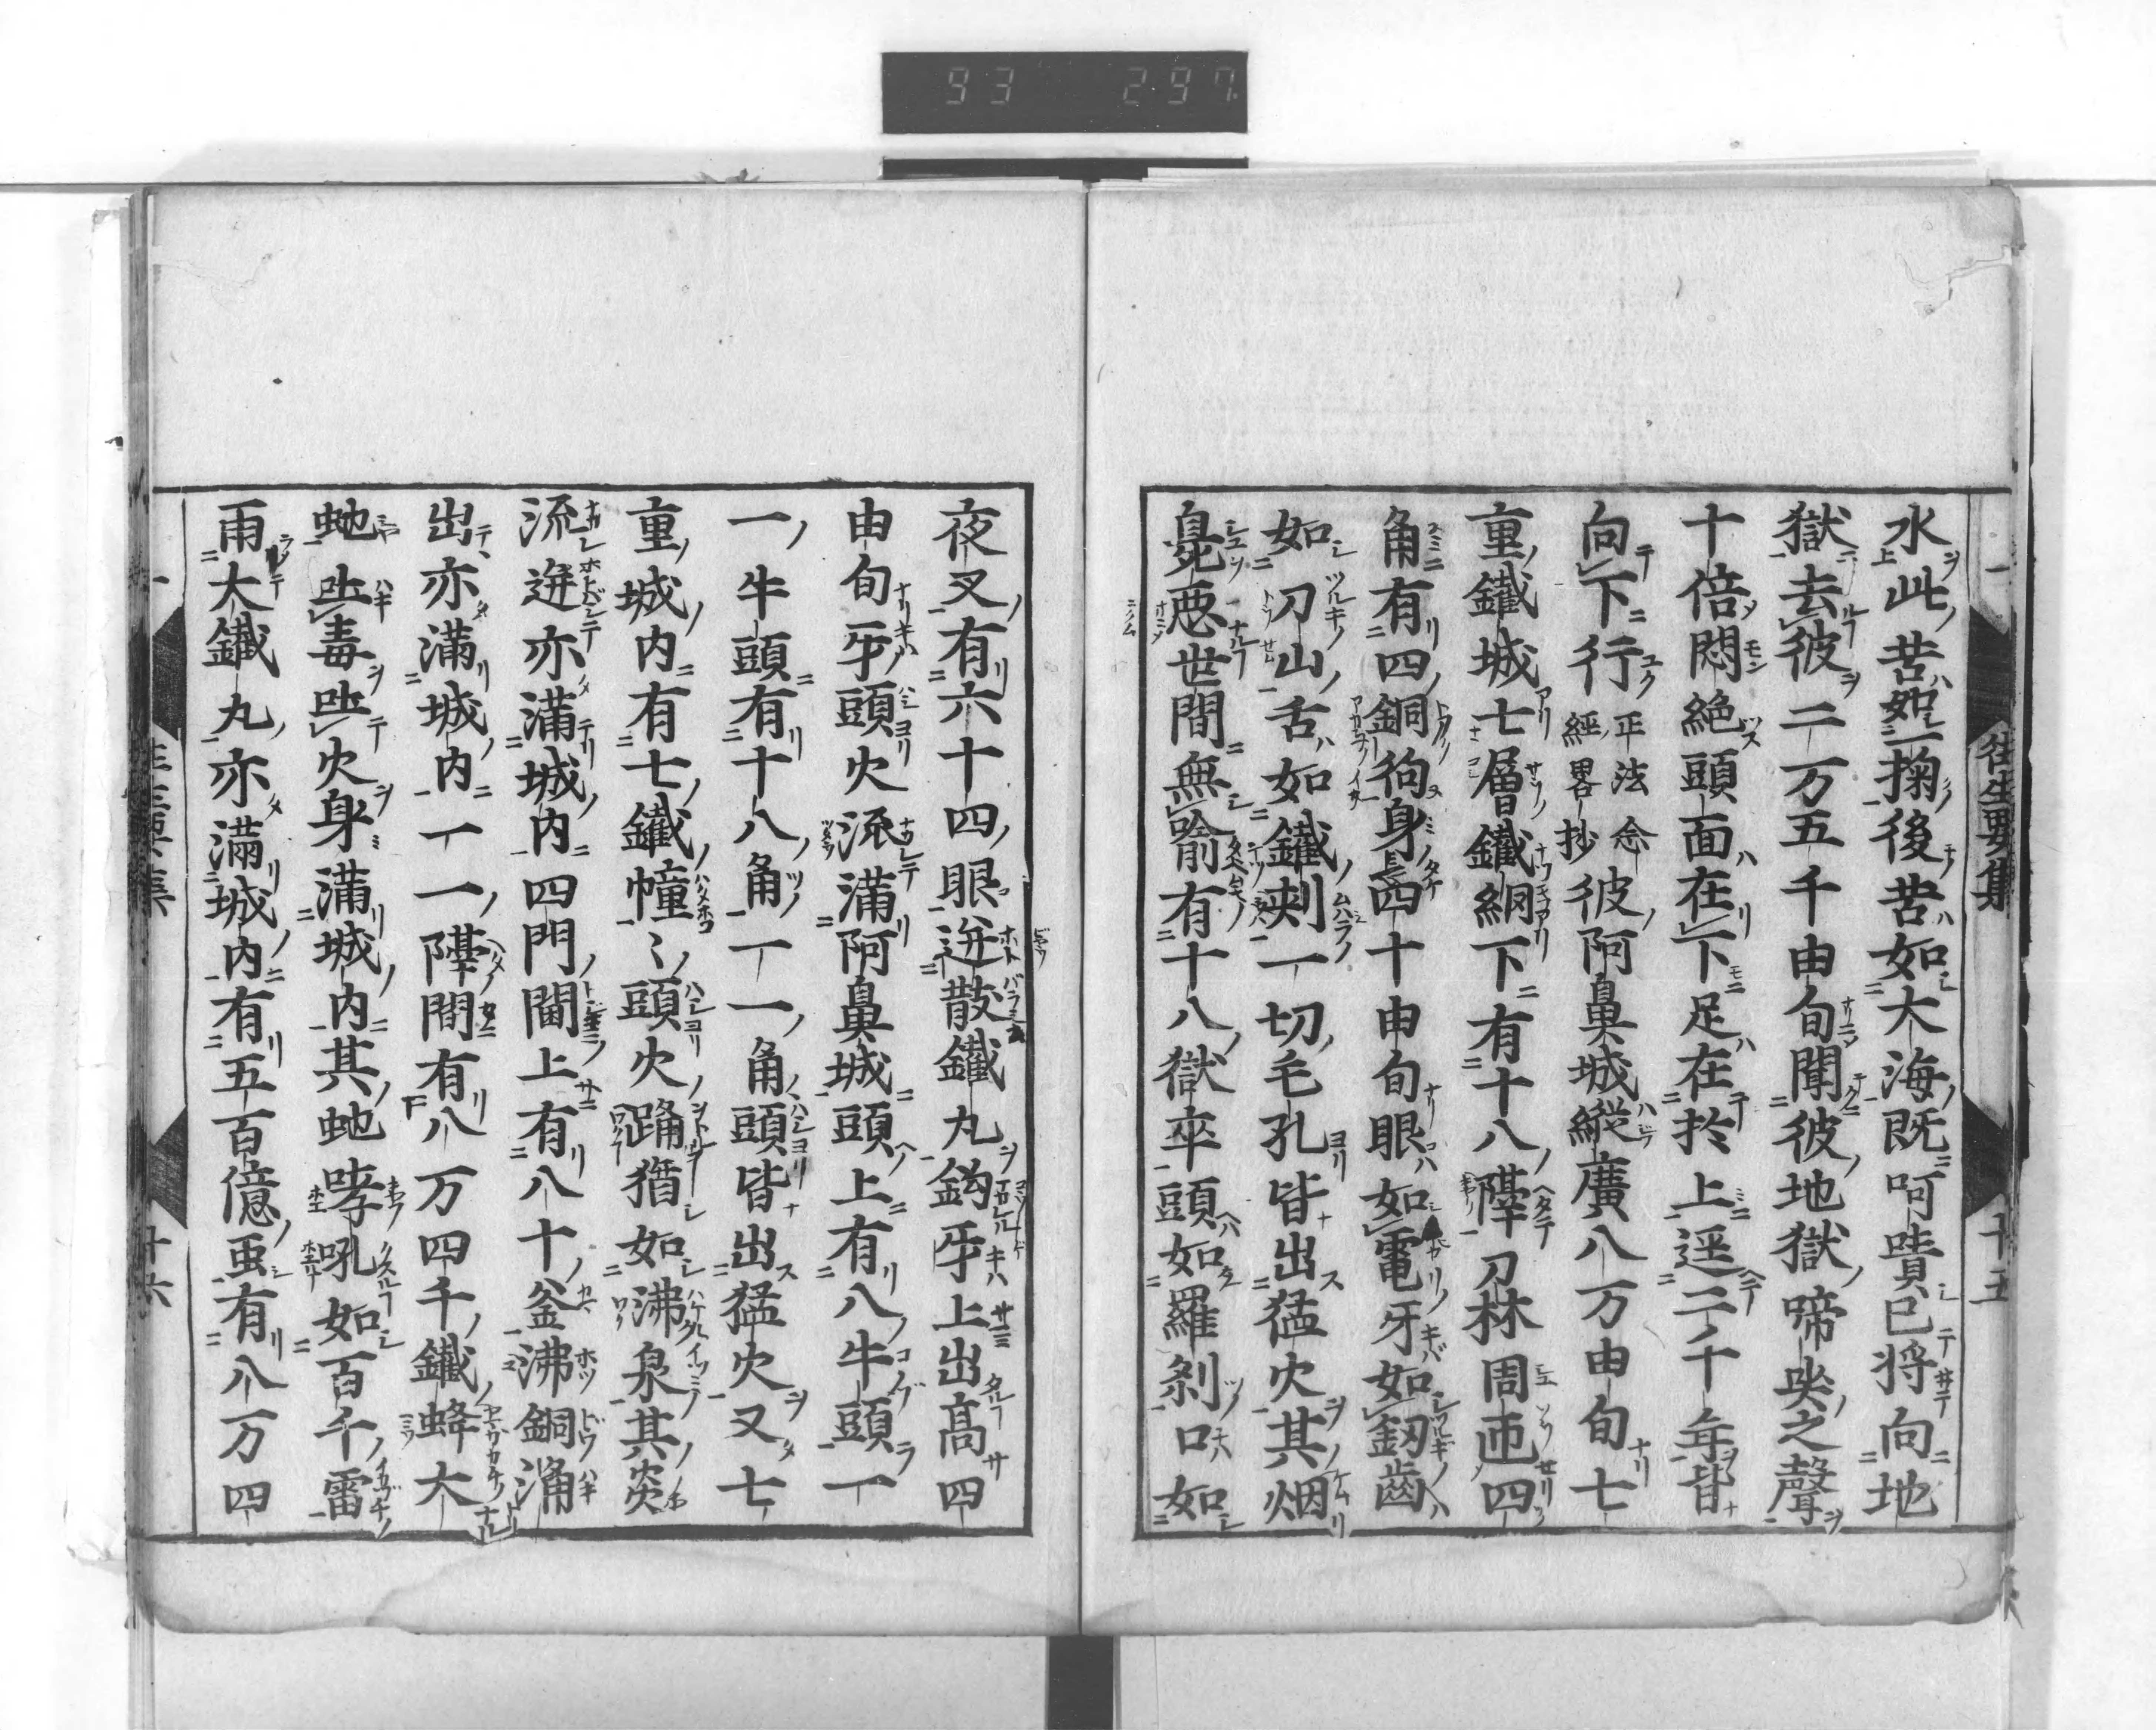 93 297
往生要集
十五
水此苦如一掬後苦如大海既呵嘖已将向地
獄去彼二万五千由旬聞彼地獄啼哭之聲
十倍悶絶頭面在下足在於上逕二千年皆
向下行 正法念經畧抄 彼阿鼻城縱廣八万由旬七
重鐵城七層鐵網下有十八隔刀林周迊四
角有四銅狗身長四十由旬眼如電牙如釼齒
如刀山舌如鐵刺一切毛孔皆出猛火其烟
臭惡世間無喩有十八獄卒頭如羅刹口如
夜叉有六十四眼迸散鐵丸鈎牙上出髙四
由旬牙頭火流滿阿鼻城頭上有八牛頭一
一牛頭有十八角一一角頭皆出猛火又七
重城内有七鐵幢〻頭火踊猶如沸泉其炎
流迸亦滿城内四門閫上有八十釜沸銅涌
出亦滿城内一一隔間有八万四千鐵蜂大
虵吐毒吐火身滿城内其虵哮吼如百千雷
雨大鐵丸亦滿城内有五百億虫有八万四
往生要集
十六